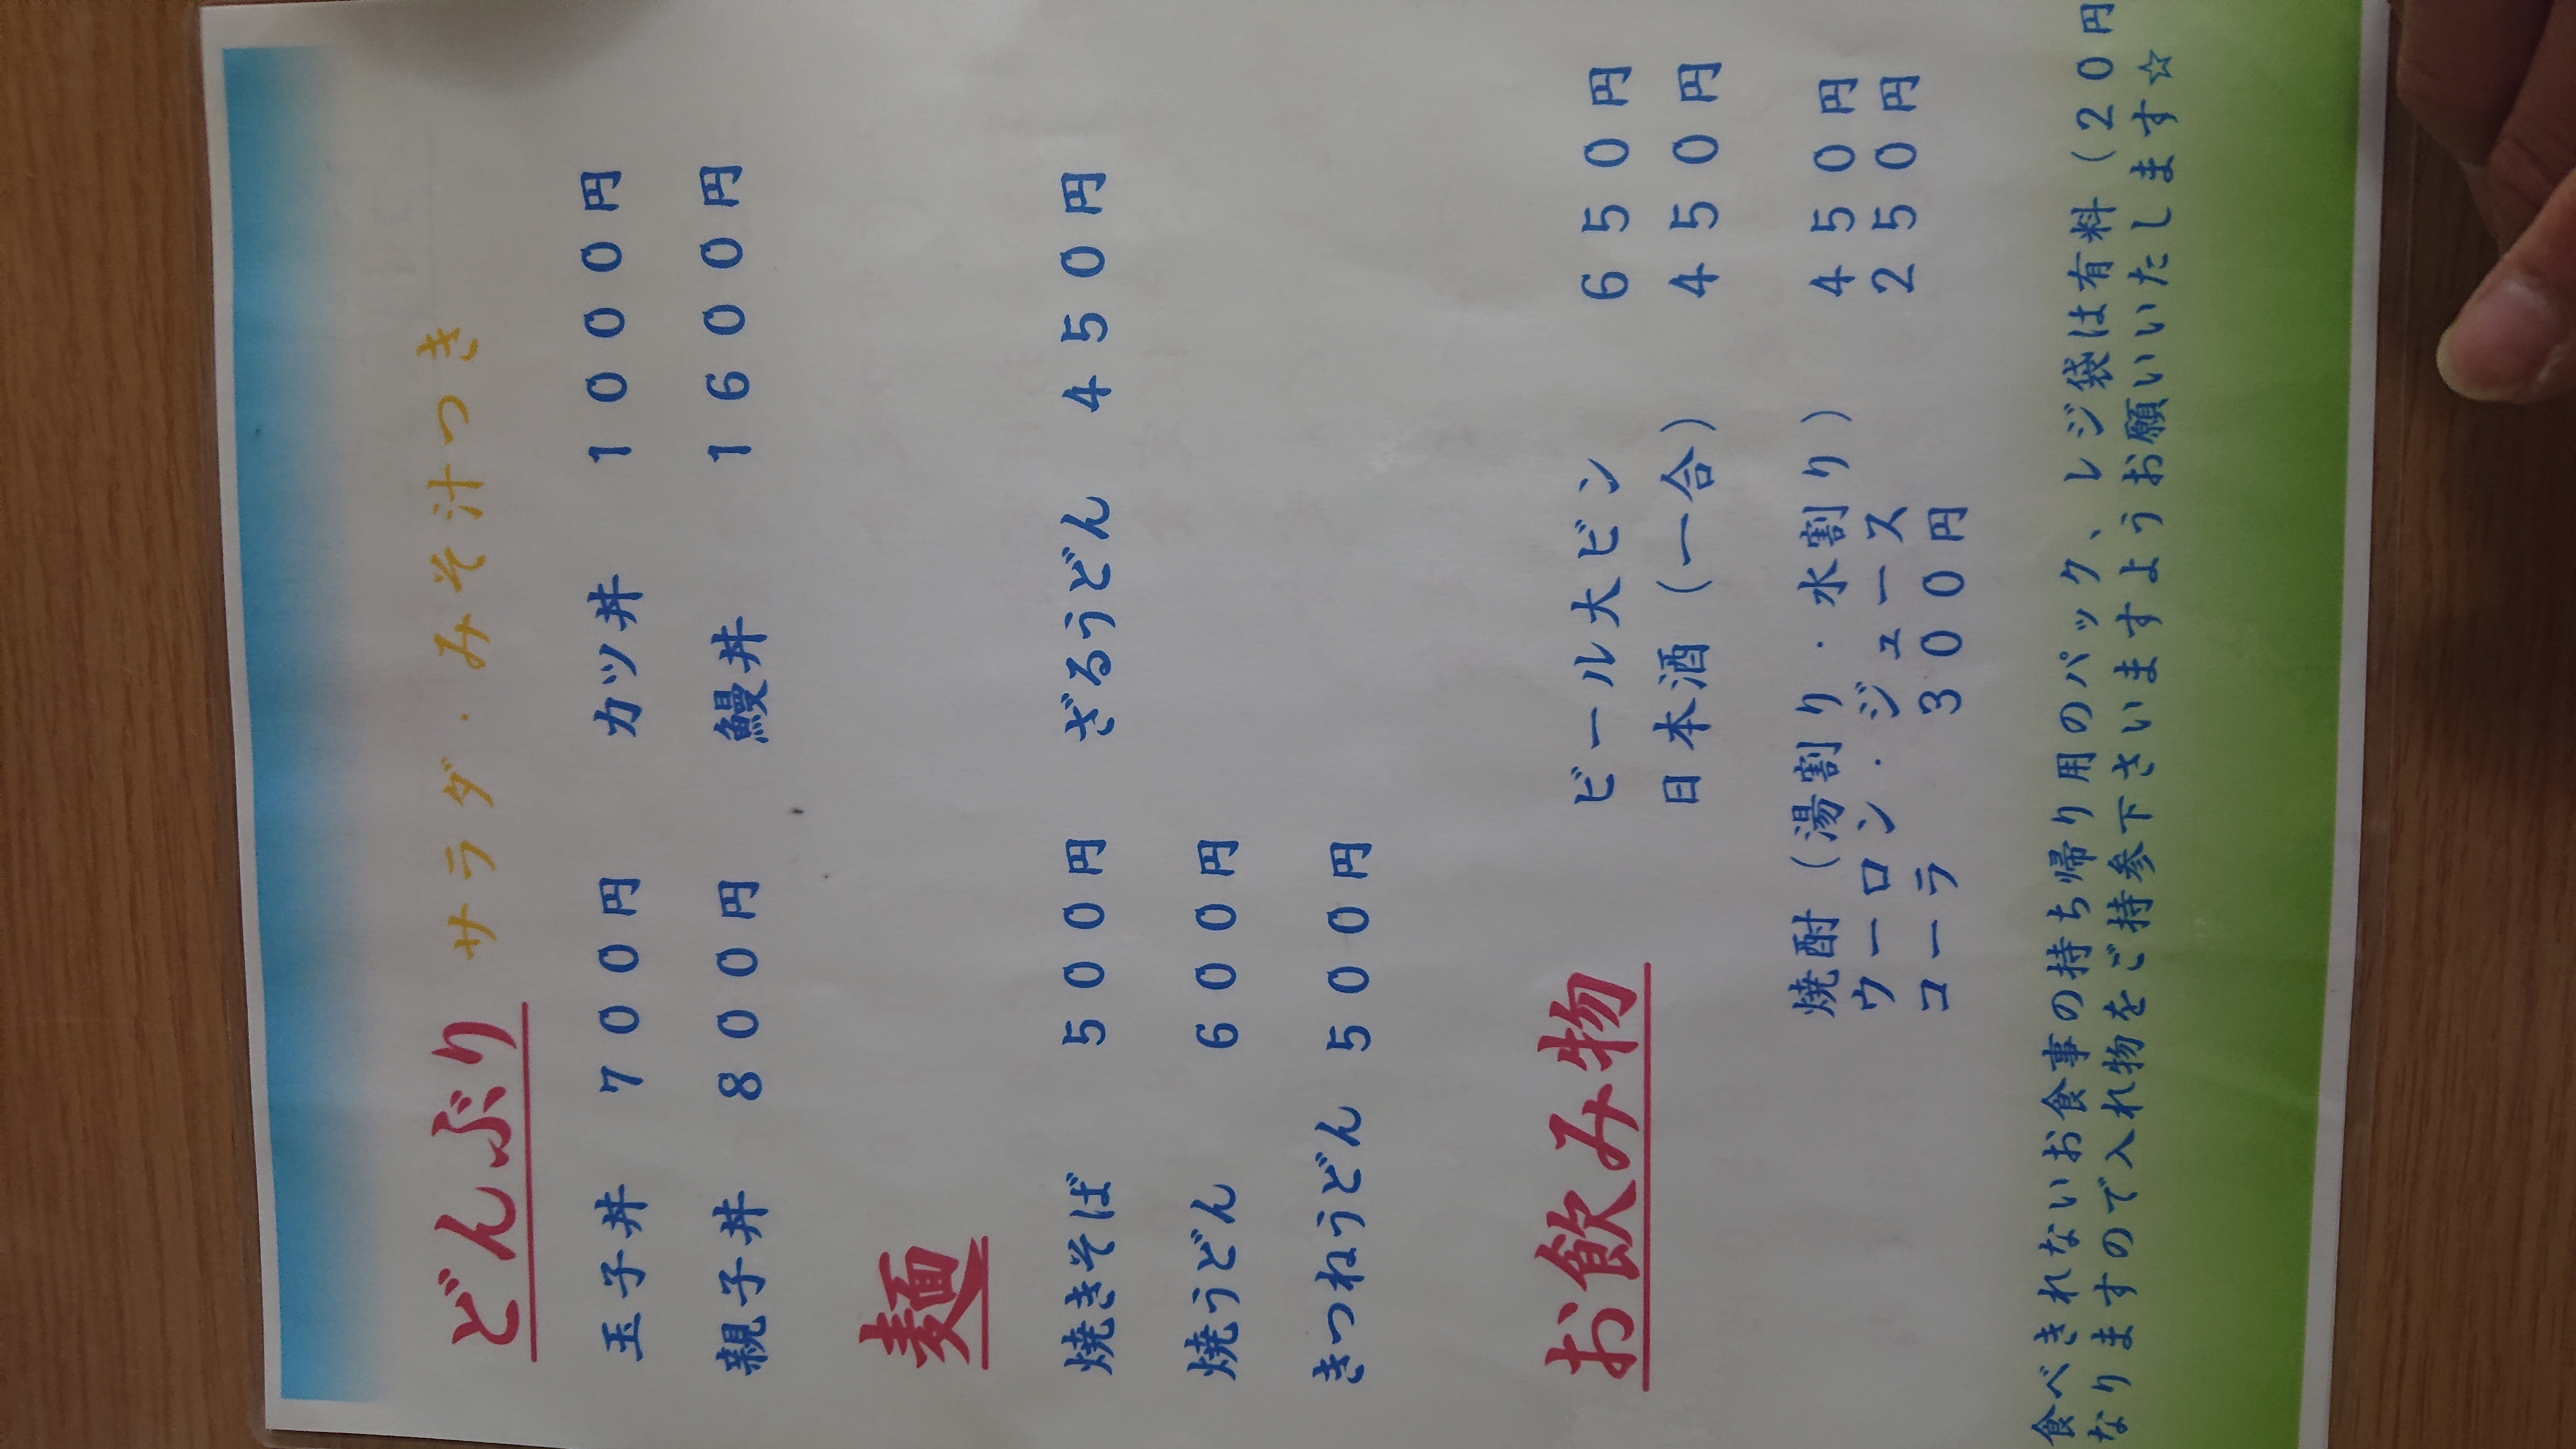 どんぶり サラダ・みそ汁つき
玉子丼 700円 カツ丼 1000円
親子丼 800円 鰻丼 1600円
麺
焼きそば 500円 ざるうどん 450円
焼うどん 600円
きつねうどん 500円
お飲み物 ビール大ビン 650円
日本酒（一合） 450円
焼酎（湯割り・水割り） 450円
ウーロン・ジュース 250円
コーラ 300円
食べきれないお食事の持ち帰り用のパック、レジ袋は有料（20円
なりますので入れ物をご持参下さいますようお願いいたします☆